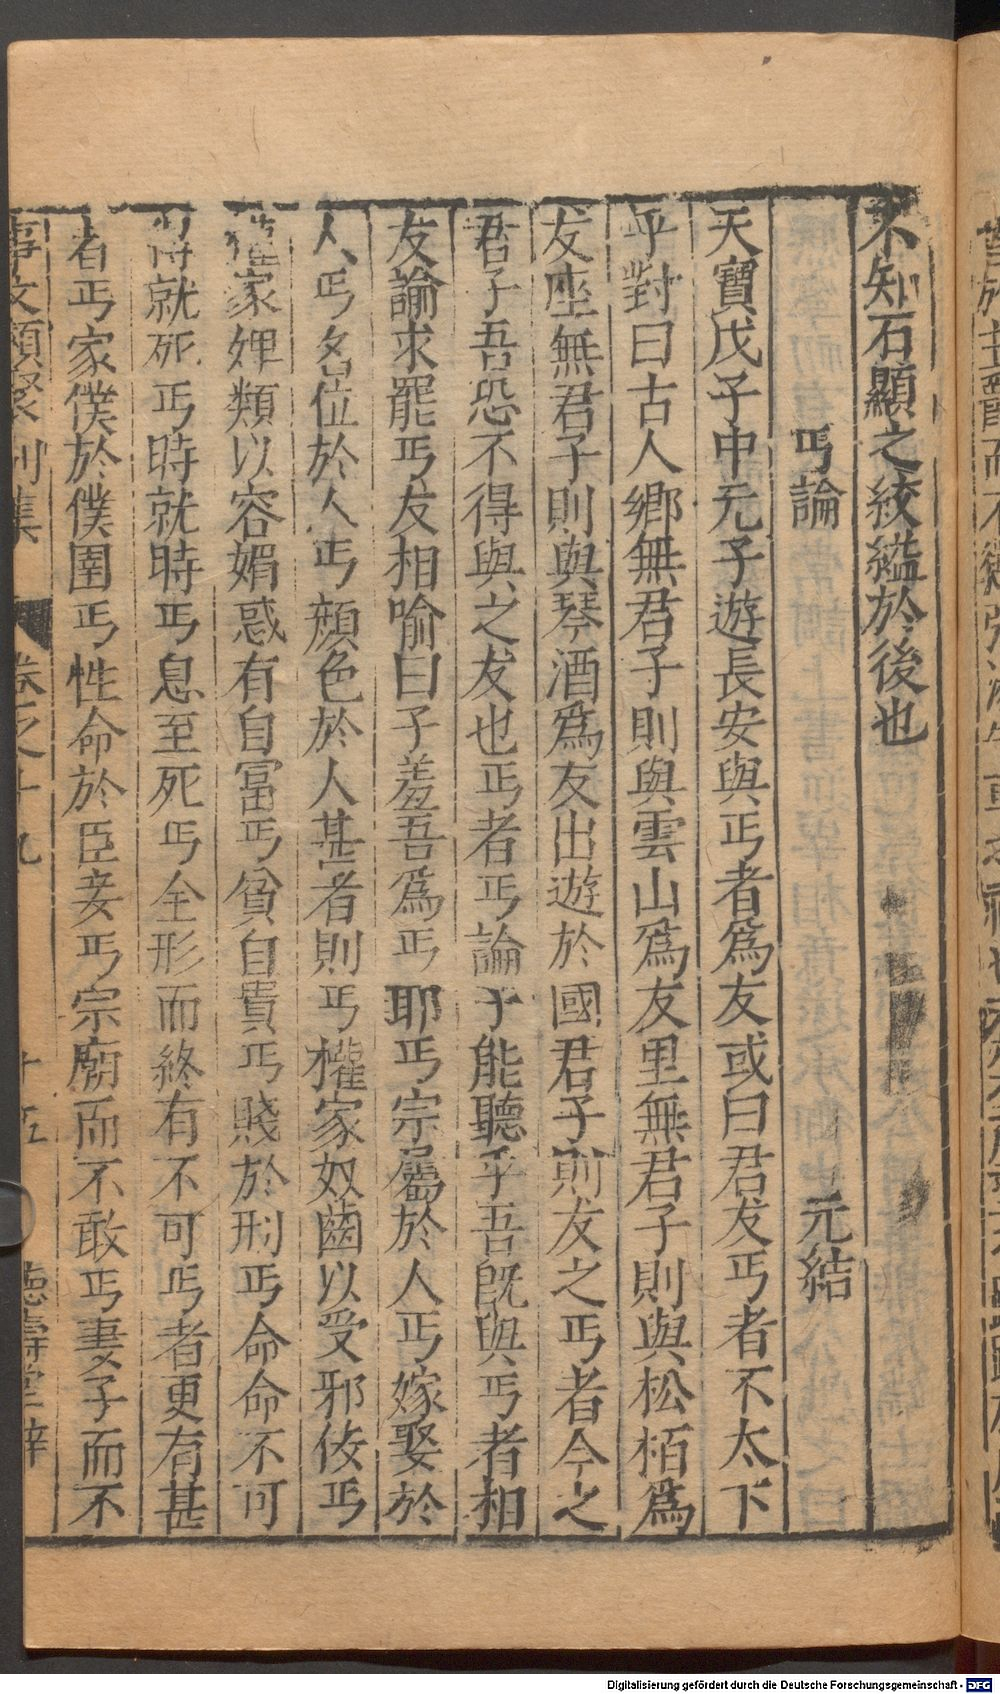 不知石顯之絞縊於後也
丐論 元結
天寶戊子中元子遊長安與丐者爲友或曰君友丐者不太下
乎對曰古人鄉無君子則與雲山爲友里無君子則與松栢爲
友座無君子則與琴酒爲友出遊於國君子則友之丐者今之
君子吾恐不得與之友也丐者丐論子能聽乎吾既與丐者相
友論求罷丐友相喻曰子羞吾爲丐耶丐宗屬於人丐嫁娶於
人丐名位於人丐顔色於人甚者則丐權家奴齒以受邪佞丐
權家婢類以容媚惑有自富丐貧自貴丐賤於刑丐命命不可
得就死丐時就時丐息至死丐全形而終有不可丐者更有甚
者丐家僕於僕圉丐性命於臣妾丐宗廟而不敢丐妻子而不
事文類聚別集 卷之十九 十五 德壽堂梓
Digitalisierung gefördert durch die Deutsche Forschungsgemeinschaft - DFG